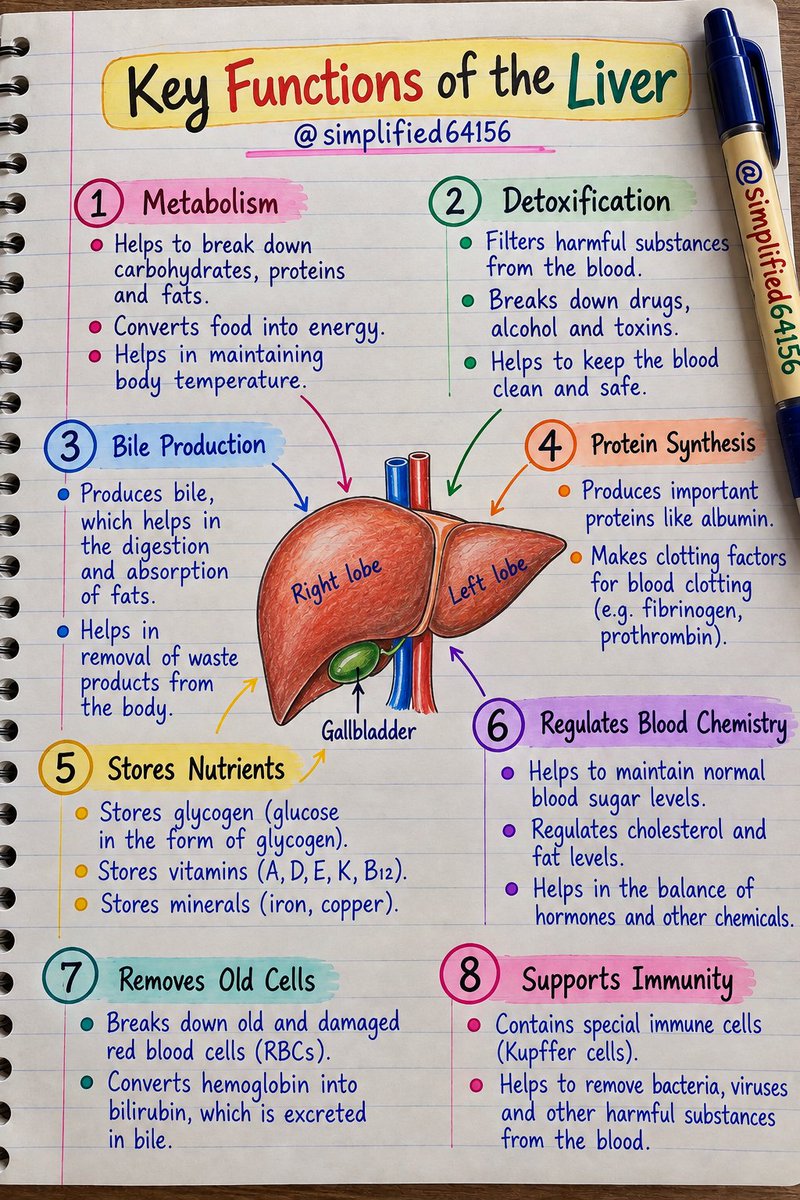 Key Functions of the Liver
@simplified64156
1 Metabolism
Helps to break down
carbohydrates, proteins
and fats.
Converts food into energy.
Helps in maintaining
body temperature.
2 Detoxification
Filters harmful substances
from the blood.
Breaks down drugs,
alcohol and toxins.
Helps to keep the blood
clean and safe.
3 Bile Production
Produces bile,
which helps in
the digestion
and absorption
of fats.
Helps in
removal of waste
products from
the body.
4 Protein Synthesis
Produces important
proteins like albumin.
Makes clotting factors
for blood clotting
(e.g. fibrinogen,
prothrombin).
Right lobe
Left lobe
Gallbladder
5 Stores Nutrients
Stores glycogen (glucose
in the form of glycogen).
Stores vitamins (A, D, E, K, B₁₂).
Stores minerals (iron, copper).
6 Regulates Blood Chemistry
Helps to maintain normal
blood sugar levels.
Regulates cholesterol and
fat levels.
Helps in the balance of
hormones and other chemicals.
7 Removes Old Cells
Breaks down old and damaged
red blood cells (RBCs).
Converts hemoglobin into
bilirubin, which is excreted
in bile.
8 Supports Immunity
Contains special immune cells
(Kupffer cells).
Helps to remove bacteria, viruses
and other harmful substances
from the blood.
@simplified64156